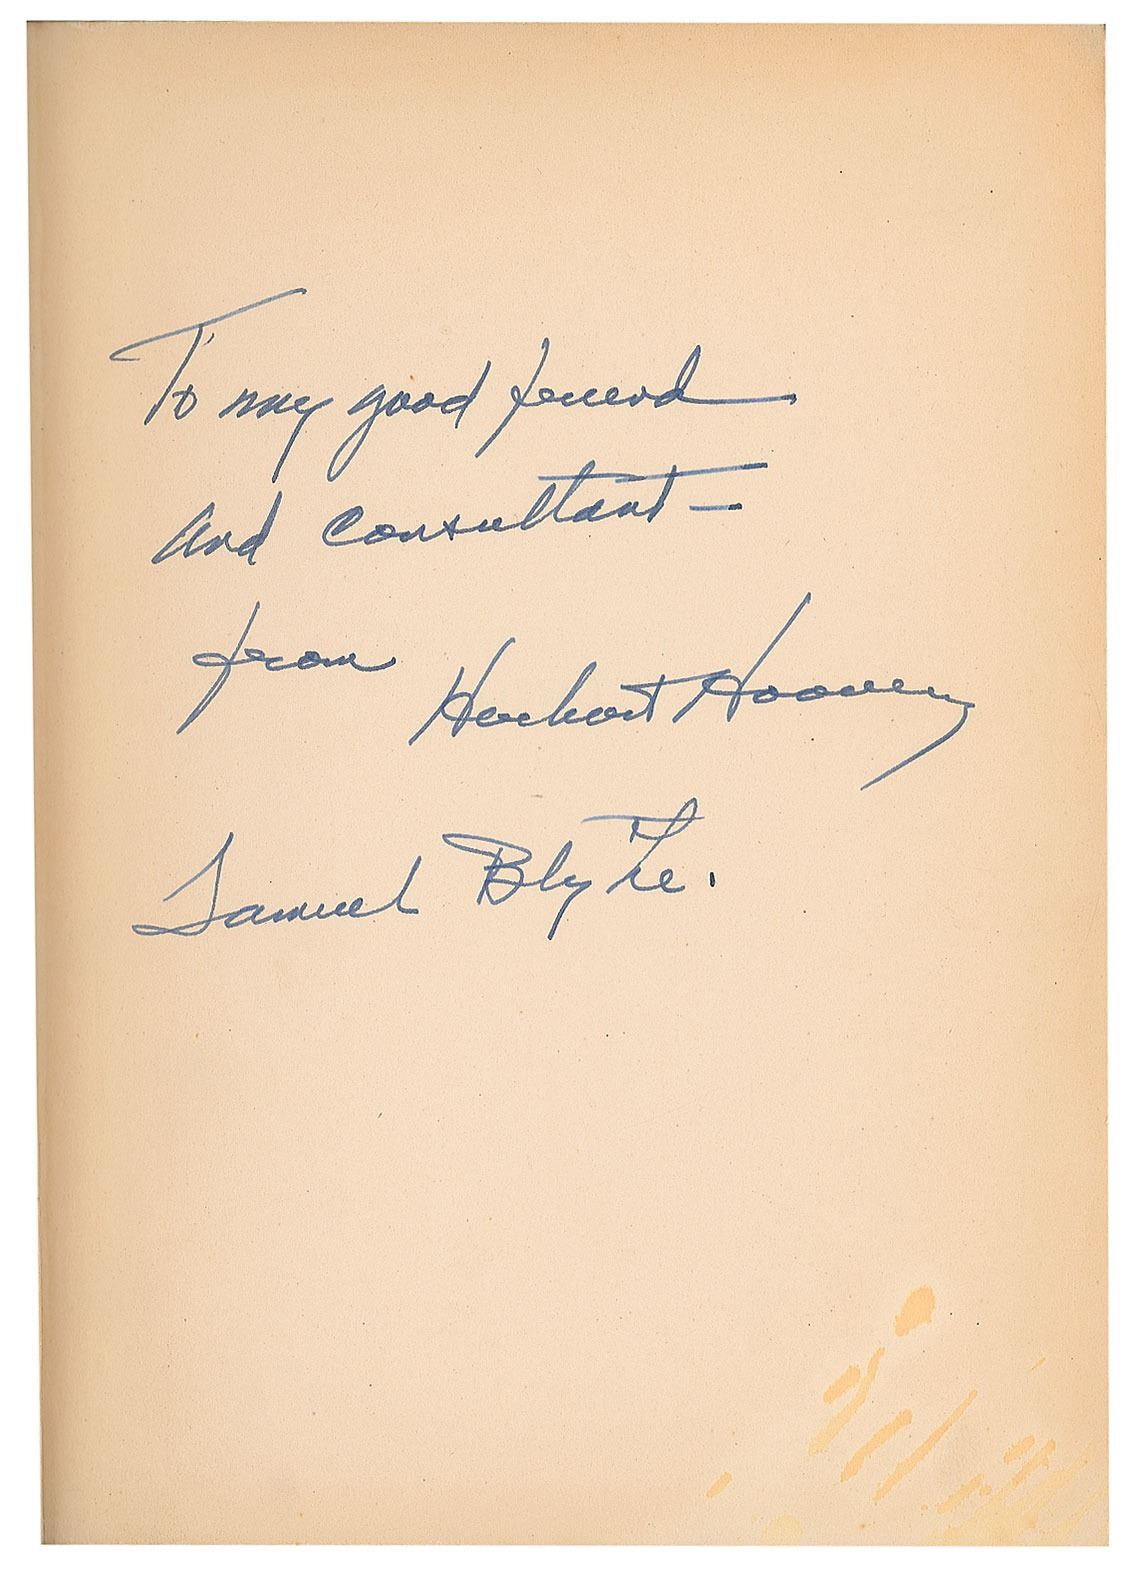 To my good friend
and consultant —
from Herbert Hoover
Samuel Blythe.